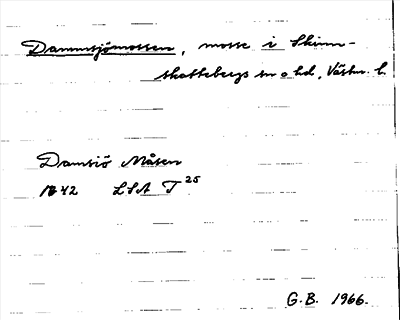 Dammsjömossen, mosse i Skinn-
skattebergs sn o hd, Västm. l.
Damsiö Måsen
1842 LSA T 25
G.B. 1966.